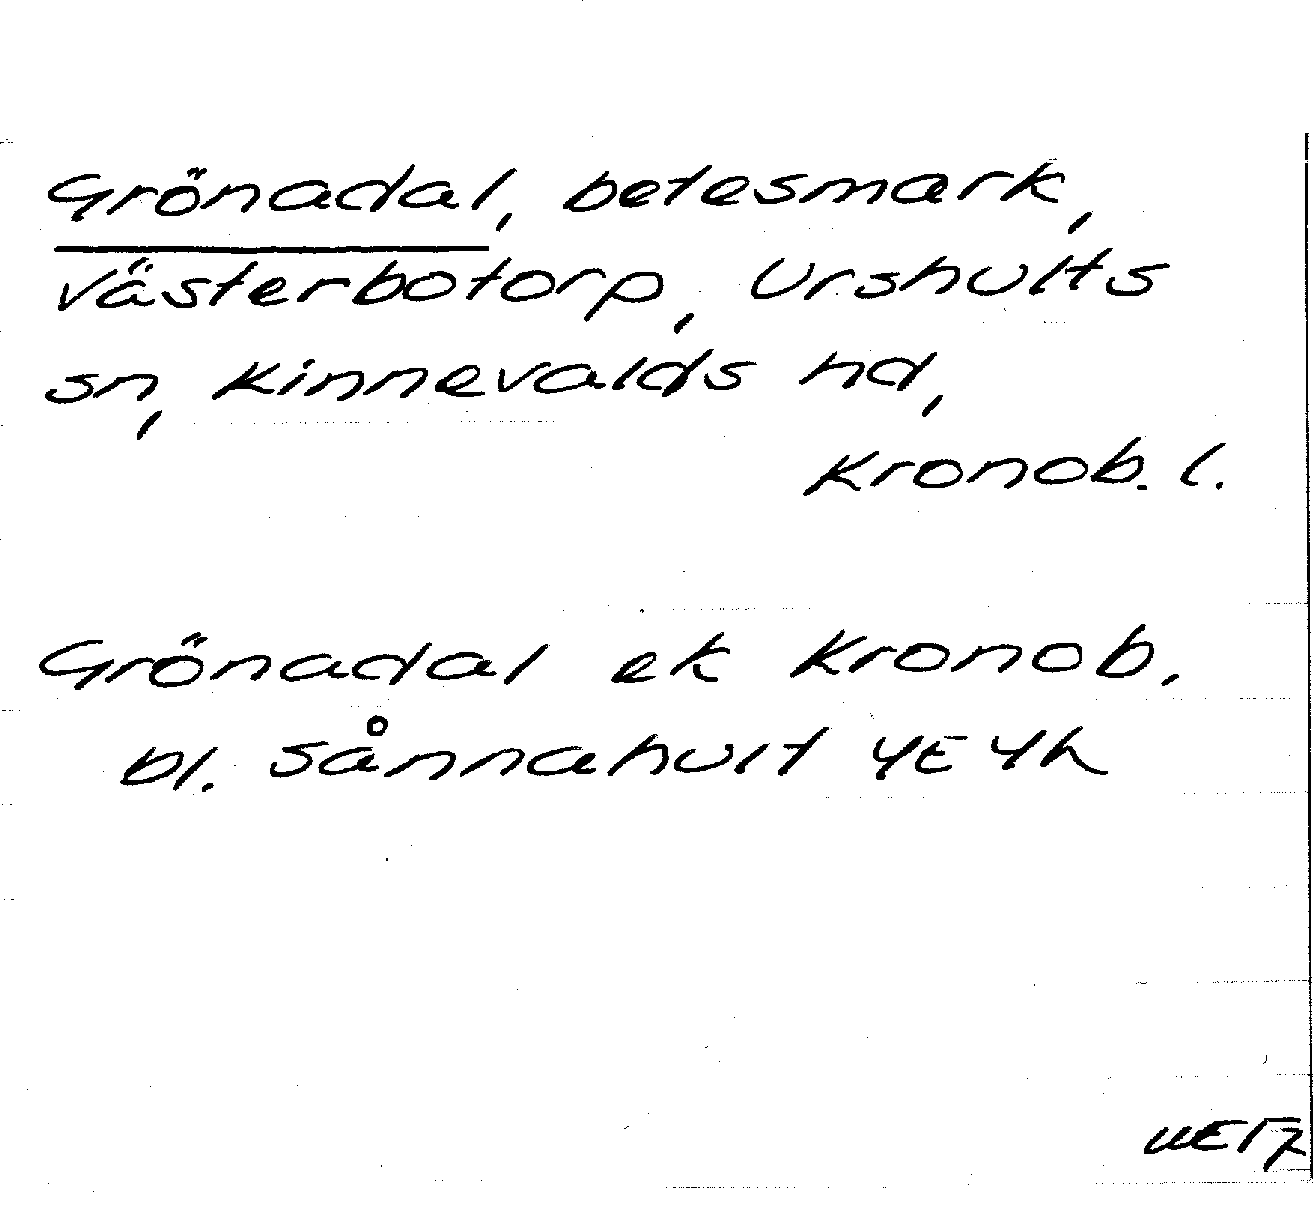 Grönadal, betesmark,
Västerbotorp, Urshults
sn, Kinnevalds hd,
Kronob. l.
Grönadal ek Kronob.
bl. Sånnahult 4E 4h